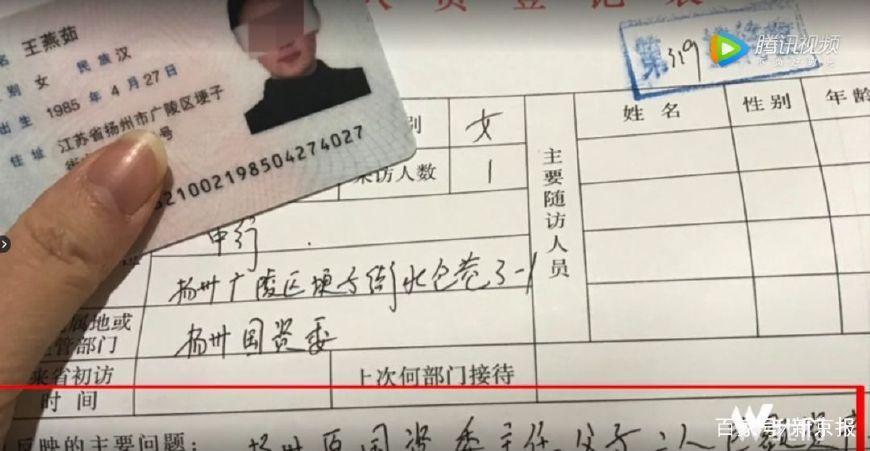 人员登记表
名 王燕茹
别 女 民族 汉
出生 1985 年 4 月 27 日
住址 江苏省扬州市广陵区埂子
街 号
21002198504274027
第 319
腾讯视频
姓名 性别 年龄
别 女
来访人数 1
主要随访人员
中行
扬州广陵区埂子街
属地或
管部门
扬州国资委
来省初访
时间
上次何部门接待
反映的主要问题：
扬州原国资委主任父子二人
百家号/新京报